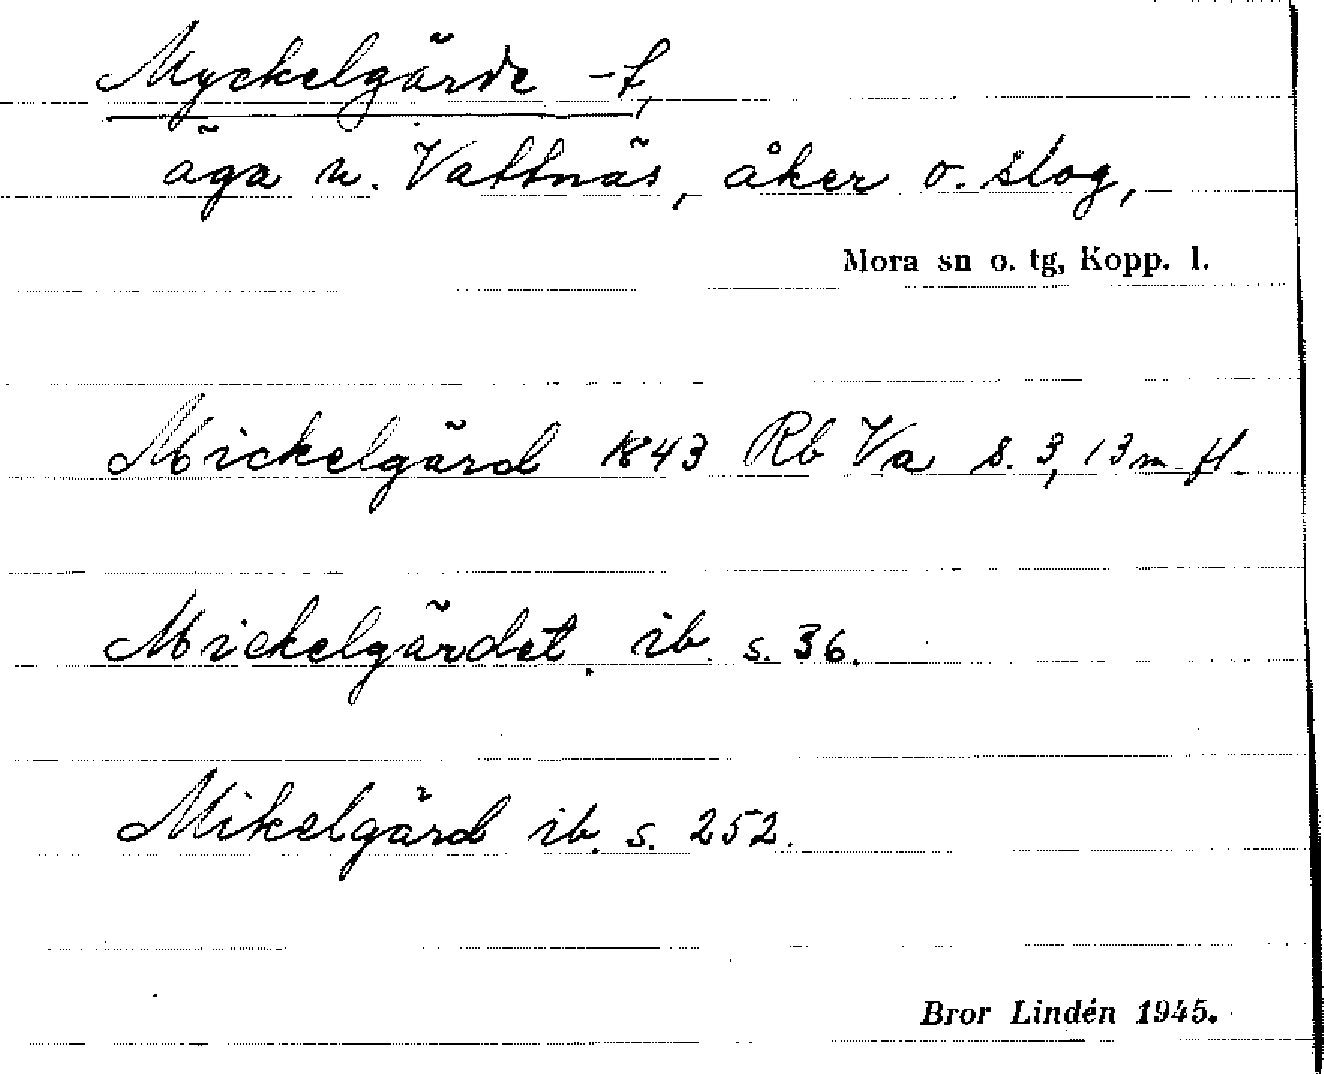 Myckelgärde -t,
äga n. Vattnäs, åker o. slog,
Mora sn o. tg, Kopp. l.
Mickelgärd 1843 Rb Va s. 3, 13 m fl.
Mickelgärdet. ib. s. 36.
Mikelgärd ib. s. 252.
Bror Lindén 1945.